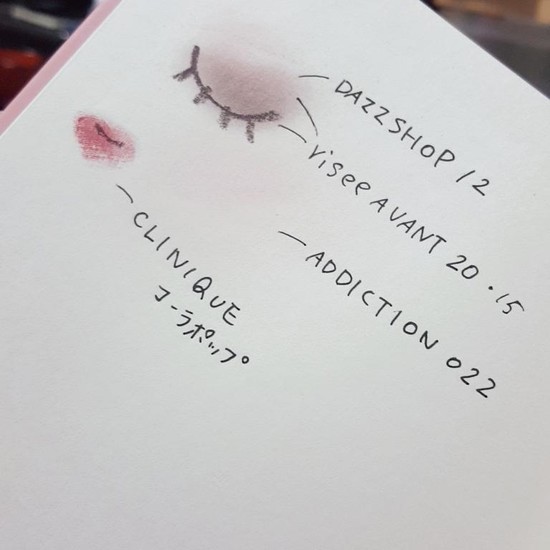 DAZZSHOP 12
Visée AVANT 20・15
ADDICTION 022
CLINIQUE
コーラポップ